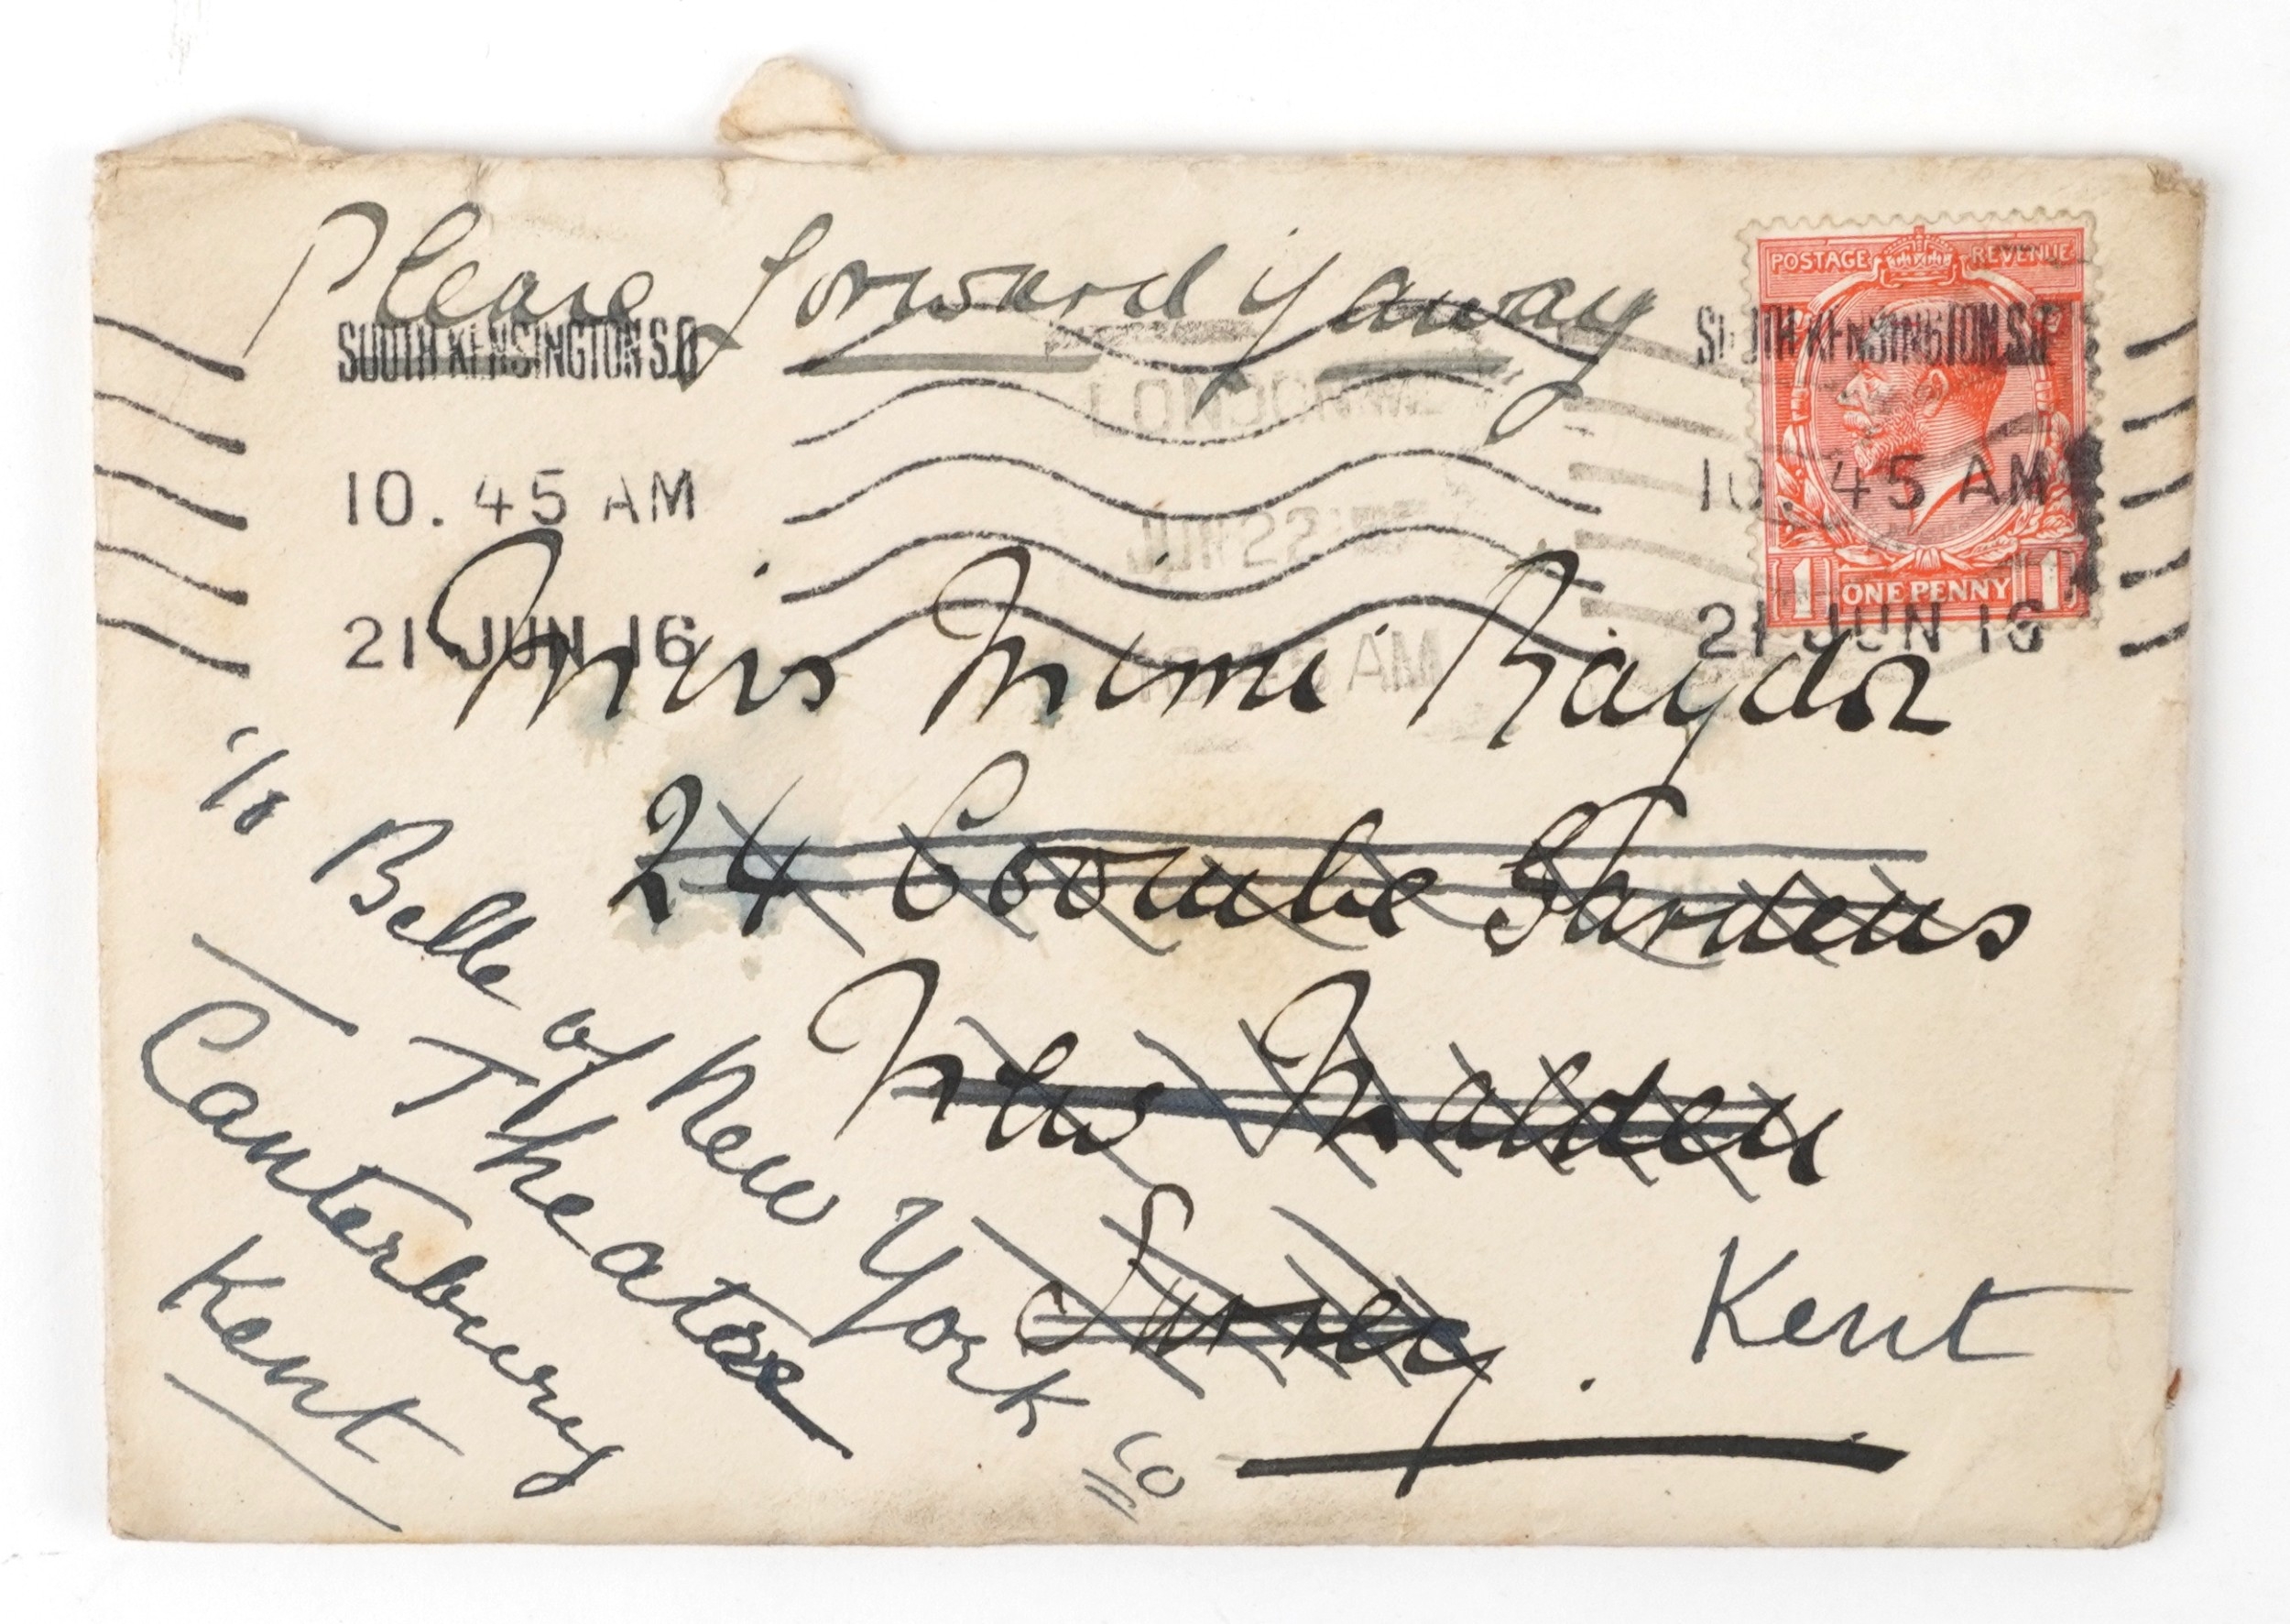 Please forward if away
SOUTH KENSINGTON S.O
10. 45 AM
21 JUN 16
LONDON
JUN 22
10.45 AM
POSTAGE REVENUE
SOUTH KENSINGTON S.O
10. 45 AM
1 ONE PENNY 1
21 JUN 16
Miss Mimi
24 Coombe Gardens
New Malden
Surrey.
Kent
c/o Belle of New York Co
Theatre
Canterbury
Kent